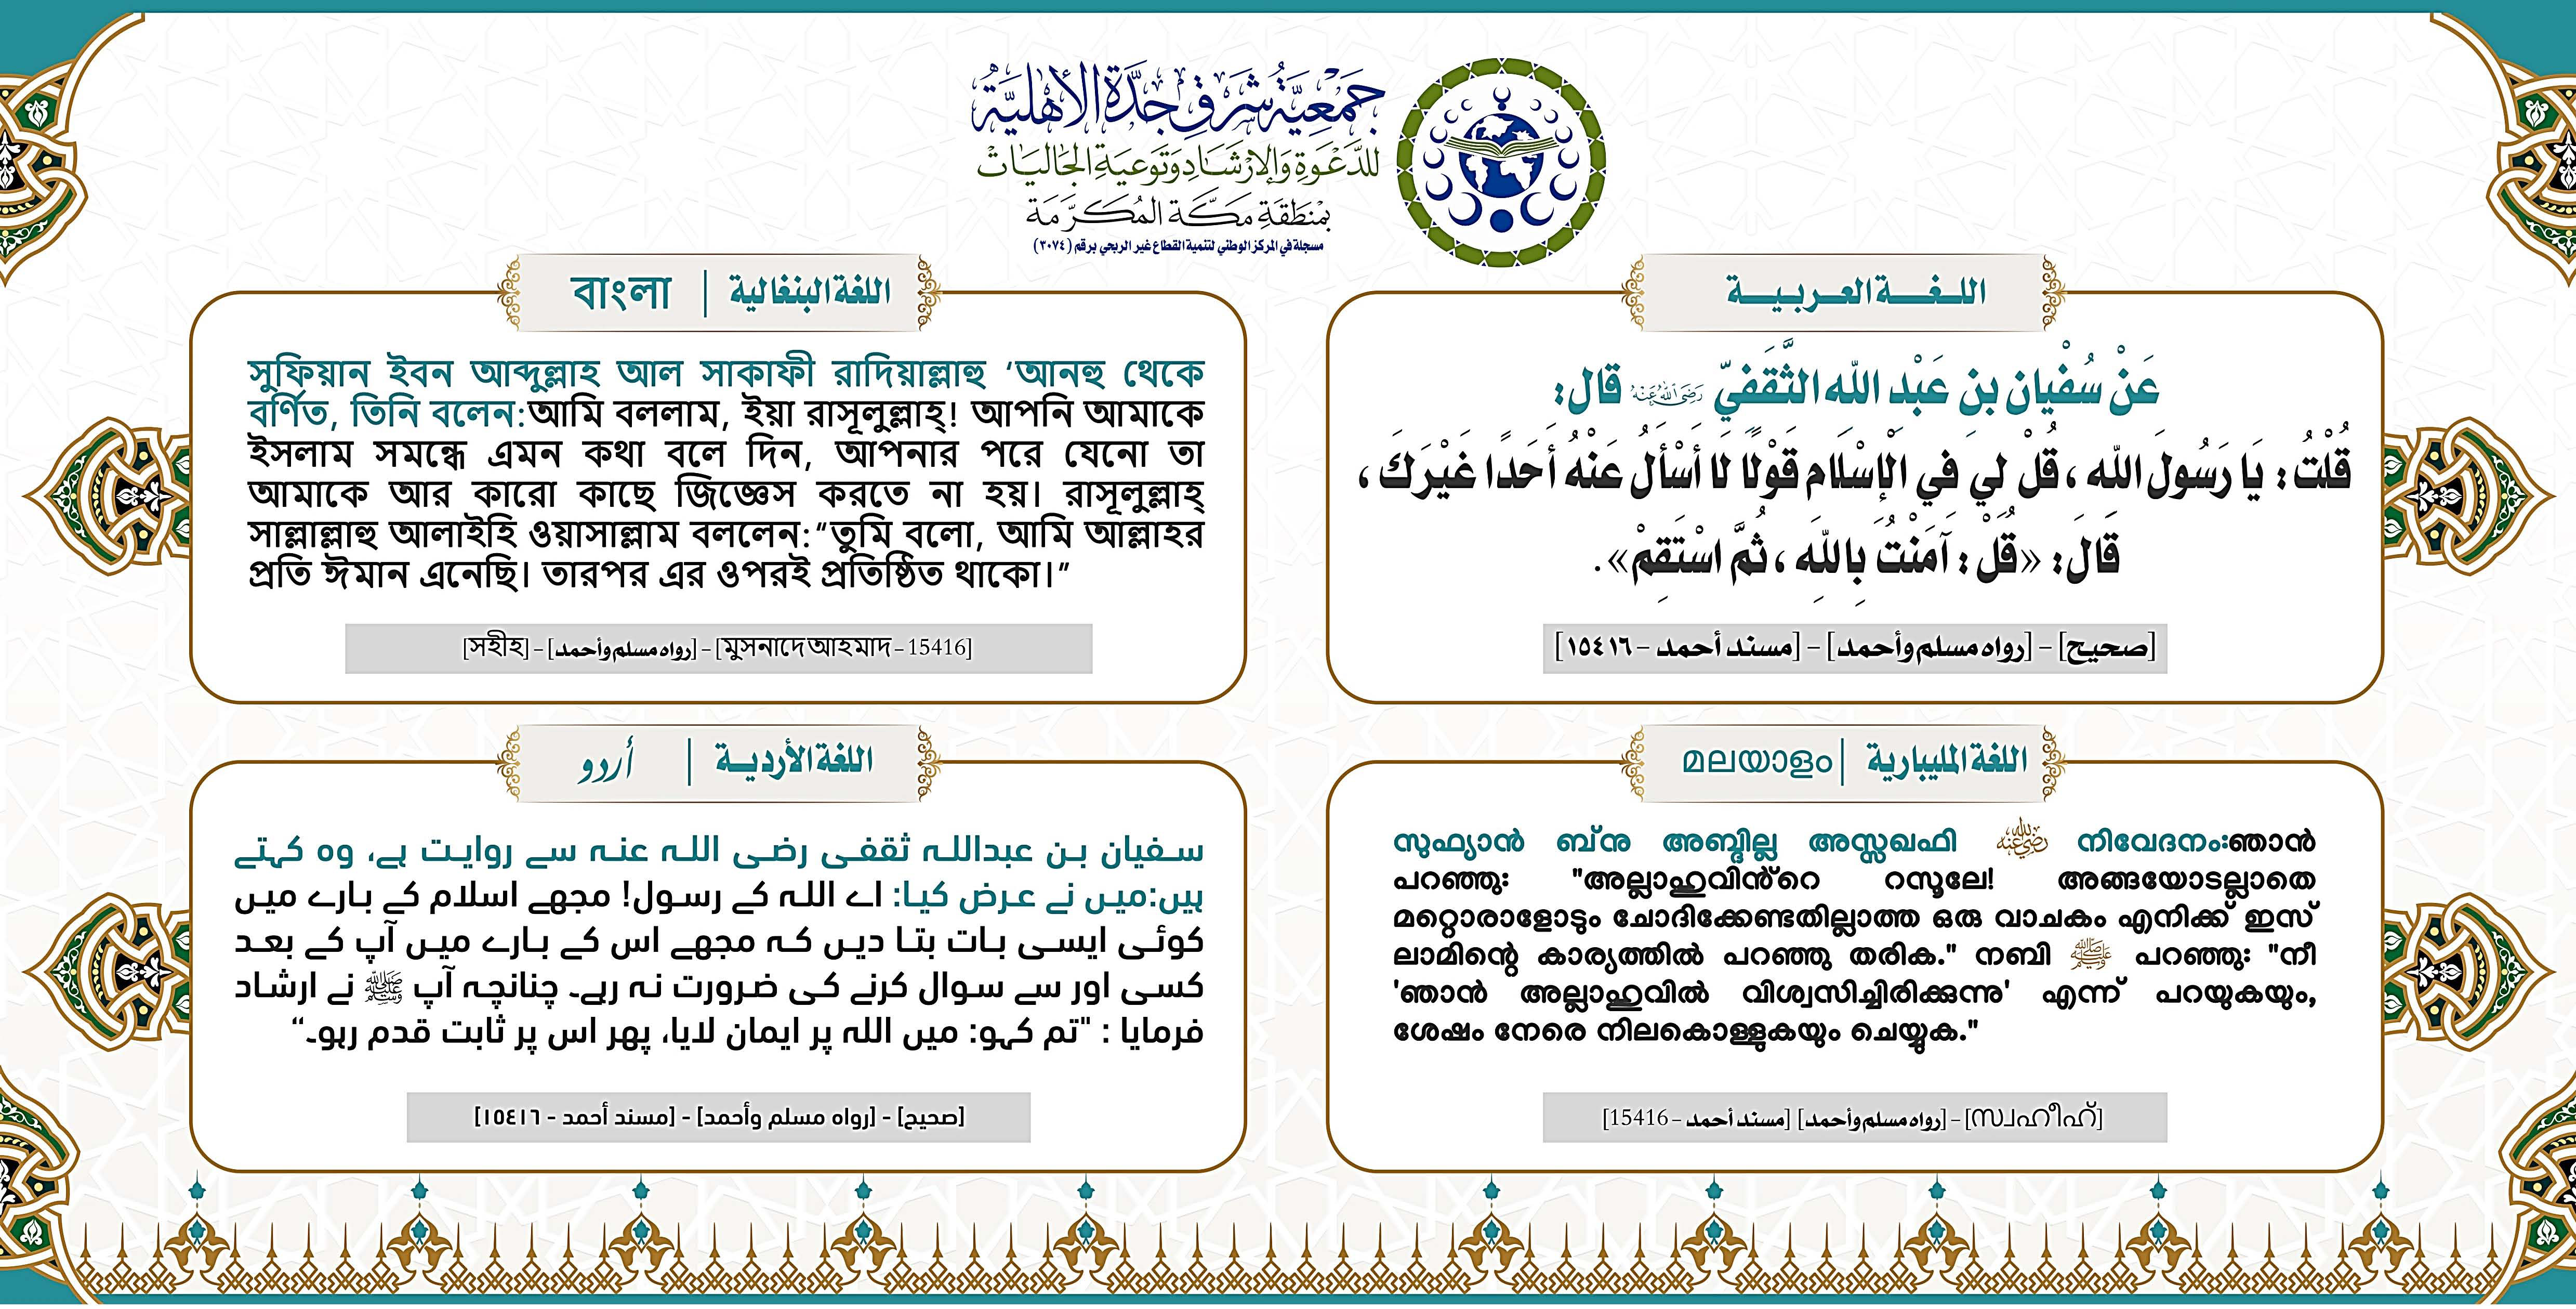 جَمْعِيَّةُ شَرْقِ جِدَّةَ الأَهْلِيَّة
لِلدَّعْوَةِ وَالإِرْشَادِ وَتَوْعِيَةِ الجَالِيَاتْ
بِمَنْطَقَةِ مَكَّةَ المُكَرَّمَة
مسجلة في المركز الوطني لتنمية القطاع غير الربحي برقم (٣٠٧٤)
اللغة العربية
عَنْ سُفْيان بنِ عَبْدِ اللّه الثَّقَفيّ رَضِيَ اللَّهُ عَنْهُ قال:
قُلْتُ: يَا رَسُولَ اللَّهِ، قُلْ لِي فِي الْإِسْلَامِ قَوْلًا لَا أَسْأَلُ عَنْهُ أَحَدًا غَيْرَكَ،
قَالَ: «قُلْ: آمَنْتُ بِاللَّهِ، ثُمَّ اسْتَقِمْ».
[صحيح] – [رواه مسلم وأحمد] – [مسند أحمد – ١٥٤١٦]
বাংলা | اللغة البنغالية
সুফিয়ান ইবন আব্দুল্লাহ আল সাকাফী রাদিয়াল্লাহু ‘আনহু থেকে
বর্ণিত, তিনি বলেন:আমি বললাম, ইয়া রাসূলুল্লাহ্! আপনি আমাকে
ইসলাম সমন্ধে এমন কথা বলে দিন, আপনার পরে যেনো তা
আমাকে আর কারো কাছে জিজ্ঞেস করতে না হয়। রাসূলুল্লাহ্
সাল্লাল্লাহু আলাইহি ওয়াসাল্লাম বললেন:“তুমি বলো, আমি আল্লাহর
প্রতি ঈমান এনেছি। তারপর এর ওপরই প্রতিষ্ঠিত থাকো।”
[সহীহ] – [رواه مسلم وأحمد] – [মুসনাদে আহমাদ – 15416]
മലയാളം | اللغة المليبارية
സുഫ്യാൻ ബ്നു അബ്ദില്ല അസ്സഖഫി رضي الله عنه നിവേദനം:ഞാൻ
പറഞ്ഞു: "അല്ലാഹുവിൻ്റെ റസൂലേ! അങ്ങയോടല്ലാതെ
മറ്റൊരാളോടും ചോദിക്കേണ്ടതില്ലാത്ത ഒരു വാചകം എനിക്ക് ഇസ്
ലാമിന്റെ കാര്യത്തിൽ പറഞ്ഞു തരിക." നബി ﷺ പറഞ്ഞു: "നീ
'ഞാൻ അല്ലാഹുവിൽ വിശ്വസിച്ചിരിക്കുന്നു' എന്ന് പറയുകയും,
ശേഷം നേരെ നിലകൊള്ളുകയും ചെയ്യുക."
[സ്വഹീഹ്] – [رواه مسلم وأحمد] [مسند أحمد – 15416]
اللغة الأردية | أردو
سفیان بن عبداللہ ثقفی رضی اللہ عنہ سے روایت ہے، وہ کہتے
ہیں:میں نے عرض کیا: اے اللہ کے رسول! مجھے اسلام کے بارے میں
کوئی ایسی بات بتا دیں کہ مجھے اس کے بارے میں آپ کے بعد
کسی اور سے سوال کرنے کی ضرورت نہ رہے۔ چنانچہ آپ ﷺ نے ارشاد
فرمایا : "تم کہو: میں اللہ پر ایمان لایا، پھر اس پر ثابت قدم رہو۔“
[صحيح] - [رواه مسلم وأحمد] - [مسند أحمد - ١٥٤١٦]